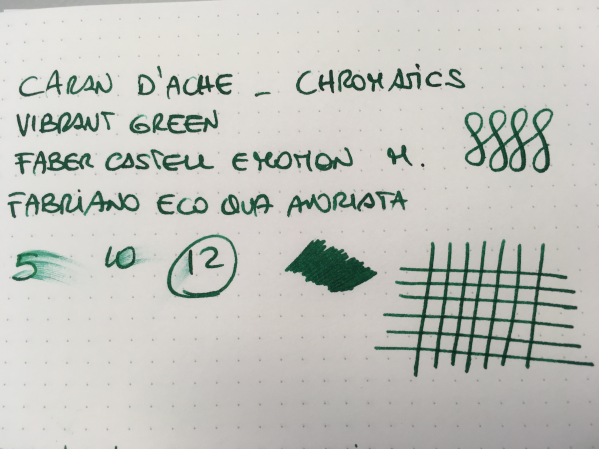 CARAN D'ACHE - CHROMATICS
VIBRANT GREEN
FABER CASTELL EMOTION M.
FABRIANO ECO QUA
5 10 12